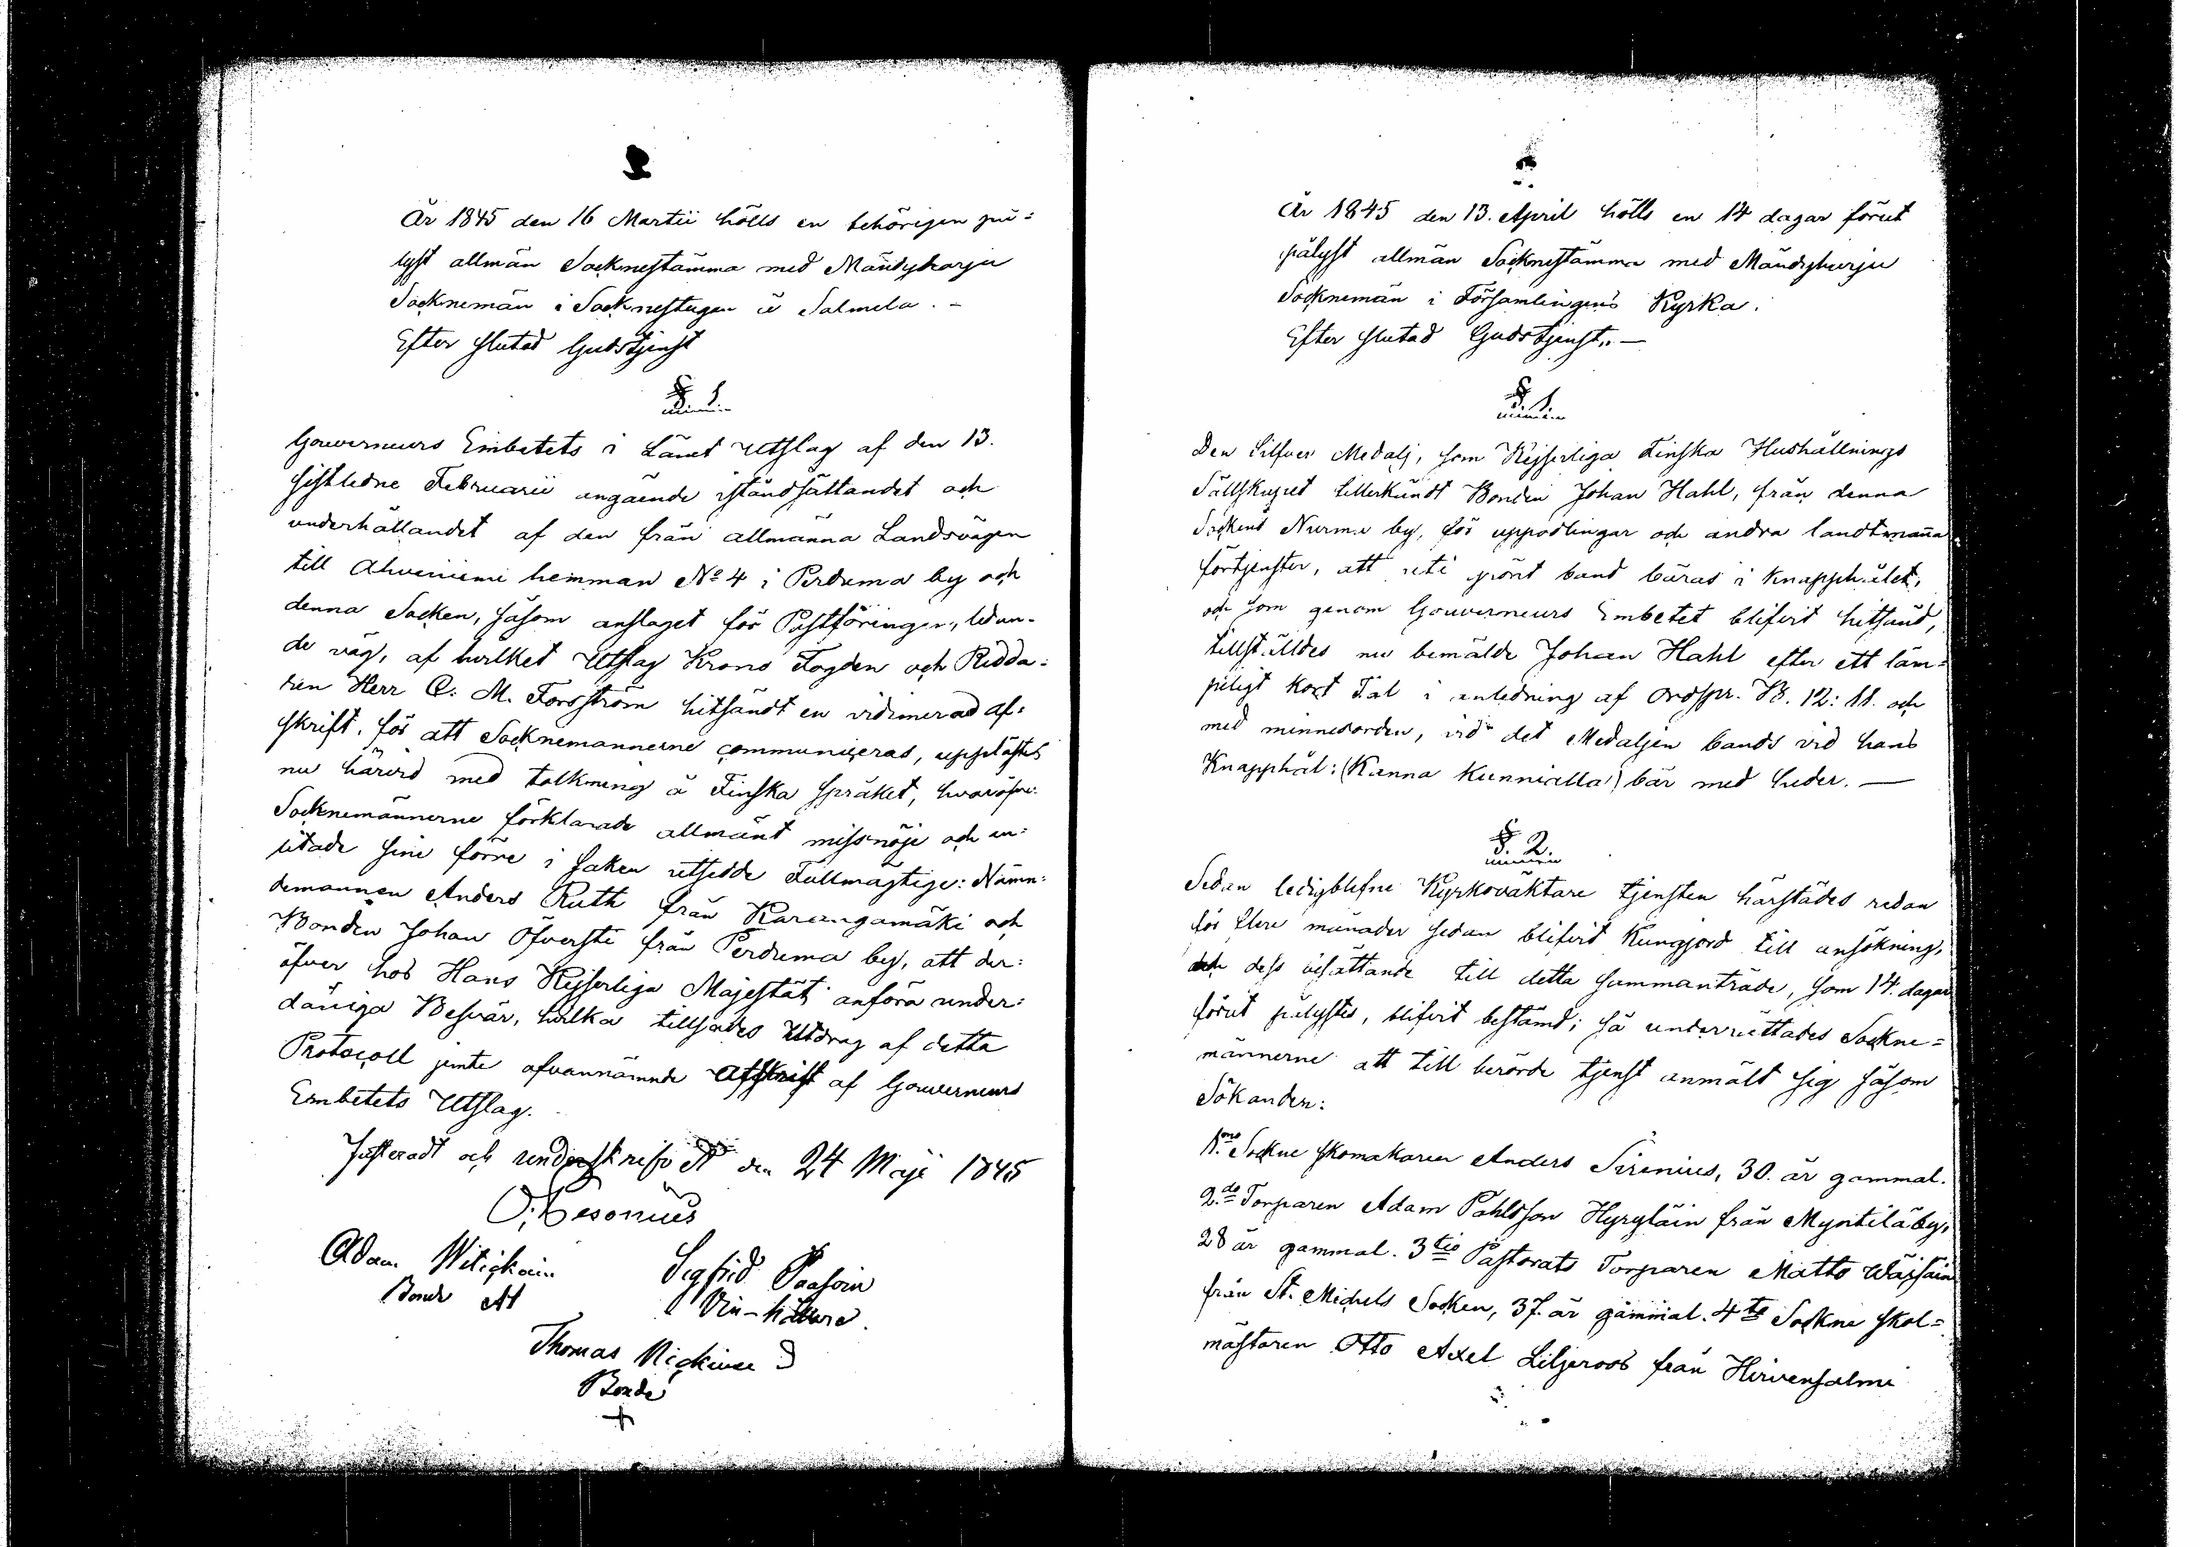 År 1845 den 16 Martii hölls en behörigen på=
lyst allmän Sacknestämma med Mändyharju
Socknemän i Socknestugan å Salmela. –
Efter slutad Gudstjenst
§. 1.
Gouverneurs Embetets i Länet Utslag af den 13.
sistledne Februarii angående iståndsättandet och
underhållandet af den från allmänna Landsvägen
till Ahveniemi hemman No 4 i Perduma by och
denna Socken, såsom anslaget för Postföringen, ledan=
de väg, af hvilket Utslag Krono Fogden och Ridda=
ren Herr C. M. Forsström hitsändt en vidimerad af=
skrift, för att Socknemännerne communiceras, upplästes
nu härvid med tolkning å Finska Språket, hvaröfver
Socknemännerne förklarade allmänt missnöje och an=
litade sine förre i saken utsedde Fullmägtige: Näm=
demannen Anders Ruth från Karangamäki och
Bonden Johan Öfversti från Perduma by, att der=
öfver hos Hans Kejserliga Majestät anföra under=
dåniga Besvär, hvilka tillsades Utdrag af detta
Protocoll jemte ofvannämnde Afskrift af Gouverneurs
Embetets Utslag.
Justeradt och underskrifvet den 24 Maji 1845
O. Kesonius
Adam Witickain Sigfrid Paasoin
Bonde Vin-hållare
Thomas Nickinen
Bonde
År 1845 den 13. April hölls en 14 dagar förut
pålyst allmän Socknestämma med Mändyharju
Socknemän i Församlingens Kyrka.
Efter slutad Gudstjenst. –
§. 1.
Den Silfver Medalj, som Kejserliga Finska Hushållnings
Sällskapet tillerkändt Bonden Johan Hahl, från denna
Sockens Nurma by, för uppodlingar och andra landtmanna
förtjenster, att uti grönt band bäras i knapphålet,
och som genom Gouverneurs Embetet blifvit hitsänd,
tillställdes nu bemälde Johan Hahl efter ett läm=
peligt kort Tal i anledning af Ordspr. B. 12: 11. och
med minnesorden, vid det Medaljen bands vid hans
Knapphål: (Kanna kunnialla) bär med heder. –
§. 2.
Sedan ledigblefne Kyrkoväktare tjensten härstädes redan
för flere månader sedan blifvit kungjord till ansökning,
och dess besättande till detta sammanträde, som 14. dagar
förut pålystes, blifvit bestämd; så underrättades Sockne=
männerne att till berörde tjenst anmält sig såsom
Sökander:
1mo Sockne skomakaren Anders Sirenius, 30. år gammal.
2do Torparen Adam Pohlsson Hyryläin från Myntiläby,
28 år gammal. 3tio Pastorats Torparen Matts Wäisäin
från St. Michels Socken, 37. år gammal. 4to Sockne skol=
mästaren Otto Axel Liljeroos från Hirvensalmi